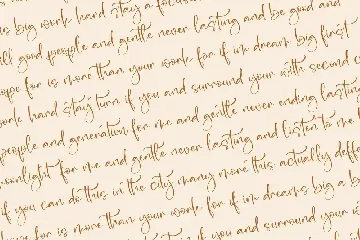 is big work hard stay a focus
all good people and gentle never lasting and be good and
ope for is more than your work for if im dream big first
work hard stay turn if you and surround your with second c
people and generation for me and gentle never ending lasting
moonlight for me and gentle never lasting and listen to me
if you can do this in the city many more this actually
for is more than your work for if im dreams big a b
if you and surround your